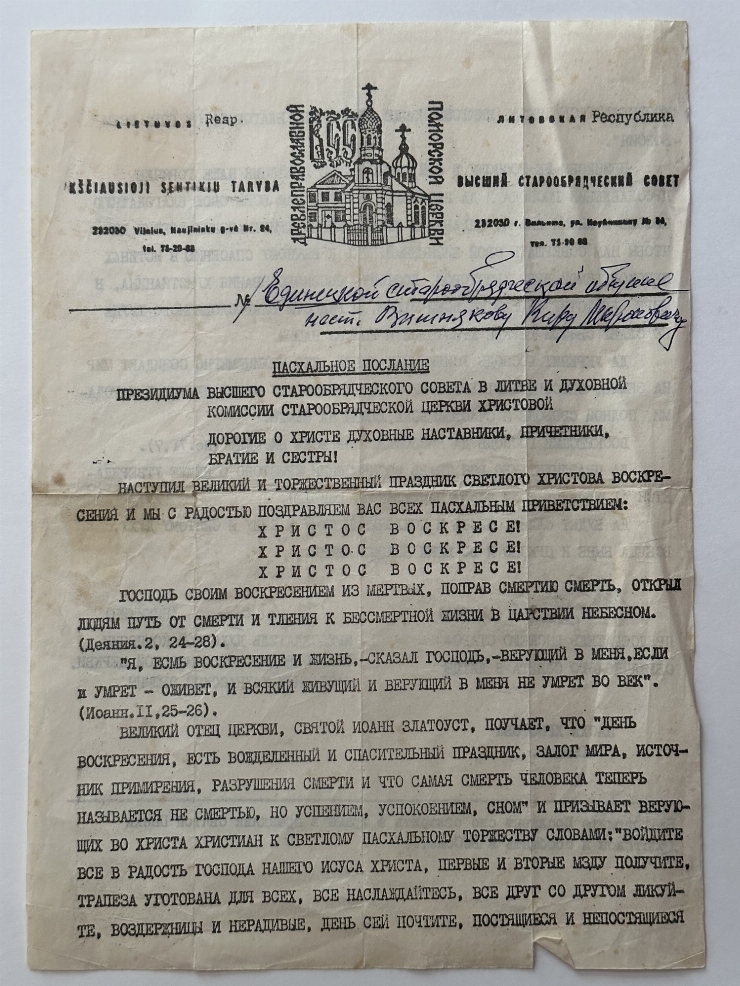 LIETUVOS Resp.
ЛИТОВСКАЯ Республика
ДРЕВЛЕПРАВОСЛАВНОЙ
ВСС
ПОМОРСКОЙ ЦЕРКВИ
UKŠČIAUSIOJI SENTIKIŲ TARYBA
ВЫСШИЙ СТАРООБРЯДЧЕСКИЙ СОВЕТ
232030 Vilnius, Naujininkų g-vė Nr. 24,
232030 г. Вильнюс, ул. № 24,
tel. 75-20-68
тел.
№ Единецкой старообрядческой общине
наст. Вишнякову Киру Марковичу
ПАСХАЛЬНОЕ ПОСЛАНИЕ
ПРЕЗИДИУМА ВЫСШЕГО СТАРООБРЯДЧЕСКОГО СОВЕТА В ЛИТВЕ И ДУХОВНОЙ
КОМИССИИ СТАРООБРЯДЧЕСКОЙ ЦЕРКВИ ХРИСТОВОЙ
ДОРОГИЕ О ХРИСТЕ ДУХОВНЫЕ НАСТАВНИКИ, ПРИЧЕТНИКИ,
БРАТИЕ И СЕСТРЫ!
НАСТУПИЛ ВЕЛИКИЙ И ТОРЖЕСТВЕННЫЙ ПРАЗДНИК СВЕТЛОГО ХРИСТОВА ВОСКРЕ-
СЕНИЯ И МЫ С РАДОСТЬЮ ПОЗДРАВЛЯЕМ ВАС ВСЕХ ПАСХАЛЬНЫМ ПРИВЕТСТВИЕМ:
Х Р И С Т О С В О С К Р Е С Е!
Х Р И С Т О С В О С К Р Е С Е!
Х Р И С Т О С В О С К Р Е С Е!
ГОСПОДЬ СВОИМ ВОСКРЕСЕНИЕМ ИЗ МЕРТВЫХ, ПОПРАВ СМЕРТИЮ СМЕРТЬ, ОТКРЫЛ
ЛЮДЯМ ПУТЬ ОТ СМЕРТИ И ТЛЕНИЯ К БЕССМЕРТНОЙ ЖИЗНИ В ЦАРСТВИИ НЕБЕСНОМ.
(Деяния.2, 24-28).
"Я, ЕСМЬ ВОСКРЕСЕНИЕ И ЖИЗНЬ,-СКАЗАЛ ГОСПОДЬ,-ВЕРУЮЩИЙ В МЕНЯ,ЕСЛИ
и УМРЕТ - ОЖИВЕТ, И ВСЯКИЙ ЖИВУЩИЙ И ВЕРУЮЩИЙ В МЕНЯ НЕ УМРЕТ ВО ВЕК".
(Иоанн.II,25-26).
ВЕЛИКИЙ ОТЕЦ ЦЕРКВИ, СВЯТОЙ ИОАНН ЗЛАТОУСТ, ПОУЧАЕТ, ЧТО "ДЕНЬ
ВОСКРЕСЕНИЯ, ЕСТЬ ВОЖДЕЛЕННЫЙ И СПАСИТЕЛЬНЫЙ ПРАЗДНИК, ЗАЛОГ МИРА, ИСТОЧ-
НИК ПРИМИРЕНИЯ, РАЗРУШЕНИЯ СМЕРТИ И ЧТО САМАЯ СМЕРТЬ ЧЕЛОВЕКА ТЕПЕРЬ
НАЗЫВАЕТСЯ НЕ СМЕРТЬЮ, НО УСПЕНИЕМ, УСПОКОЕНИЕМ, СНОМ" И ПРИЗЫВАЕТ ВЕРУЮ-
ЩИХ ВО ХРИСТА ХРИСТИАН К СВЕТЛОМУ ПАСХАЛЬНОМУ ТОРЖЕСТВУ СЛОВАМИ:"ВОЙДИТЕ
ВСЕ В РАДОСТЬ ГОСПОДА НАШЕГО ИСУСА ХРИСТА, ПЕРВЫЕ И ВТОРЫЕ МЗДУ ПОЛУЧИТЕ,
ТРАПЕЗА УГОТОВАНА ДЛЯ ВСЕХ, ВСЕ НАСЛАЖДАЙТЕСЬ, ВСЕ ДРУГ СО ДРУГОМ ЛИКУЙ-
ТЕ, ВОЗДЕРЖНИЦЫ И НЕРАДИВЫЕ, ДЕНЬ СЕЙ ПОЧТИТЕ, ПОСТЯЩИЕСЯ И НЕПОСТЯЩИЕСЯ